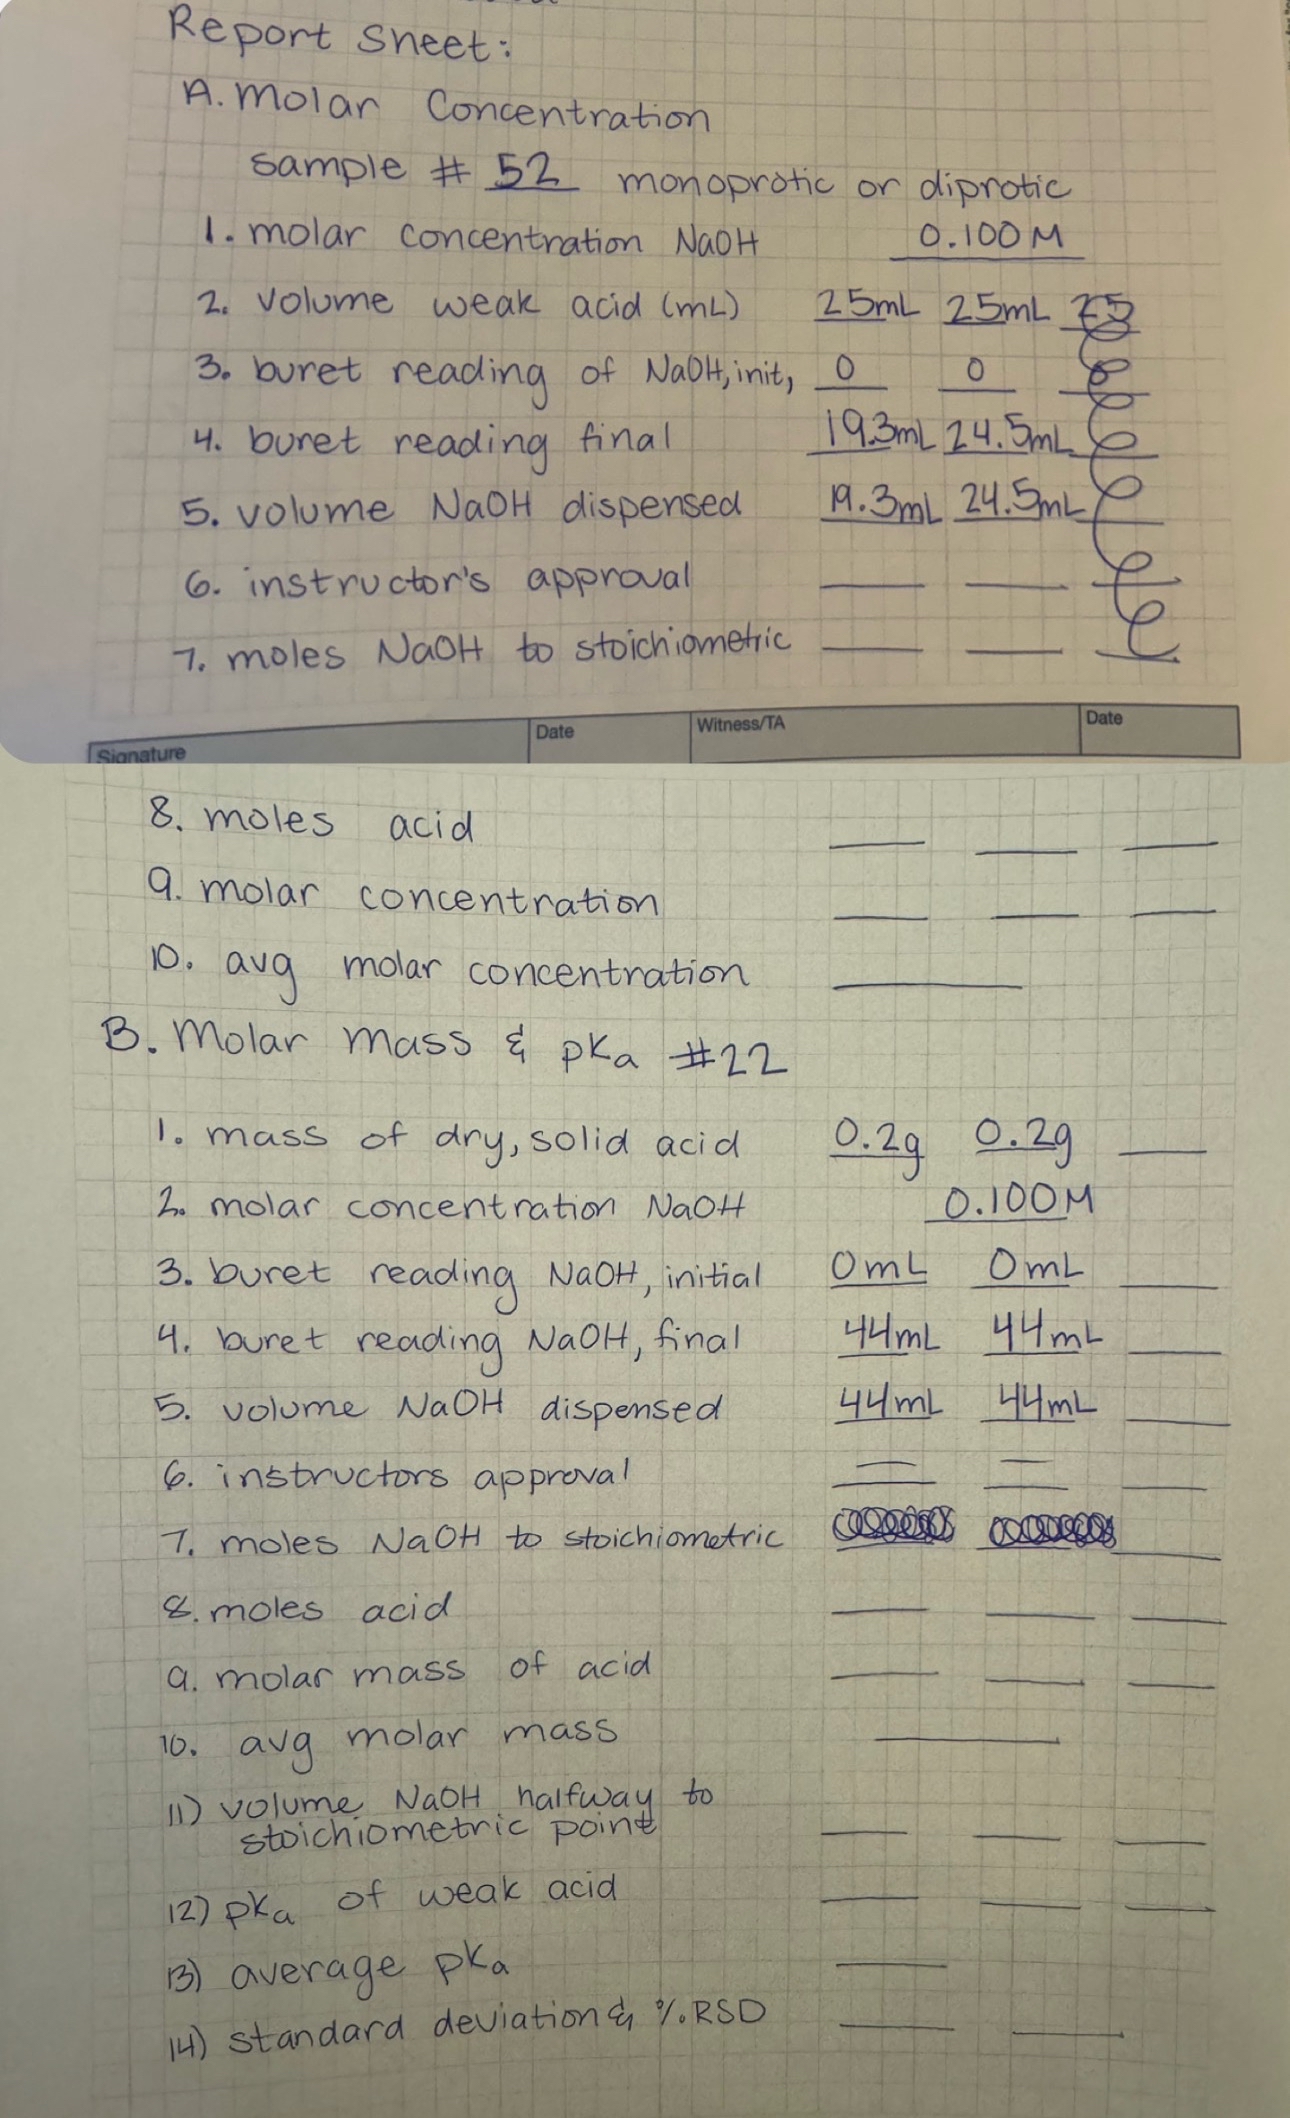 Report Sheet:
A. Molar Concentration
Sample # 52 monoprotic or diprotic
1. molar concentration NaOH 0.100M
2. volume weak acid (mL) 25mL 25mL 25
3. buret reading of NaOH, init, 0 0 0
4. buret reading final 19.3mL 24.5mL
5. volume NaOH dispensed 19.3mL 24.5mL
6. instructor's approval
7. moles NaOH to stoichiometric
Signature Date Witness/TA Date
8. moles acid
9. molar concentration
10. avg molar concentration
B. Molar Mass & pKa #22
1. mass of dry, solid acid 0.2g 0.2g
2. molar concentration NaOH 0.100M
3. buret reading NaOH, initial 0mL 0mL
4. buret reading NaOH, final 44mL 44mL
5. volume NaOH dispensed 44mL 44mL
6. instructors approval
7. moles NaOH to stoichiometric
8. moles acid
9. molar mass of acid
10. avg molar mass
11) volume NaOH halfway to
stoichiometric point
12) pKa of weak acid
13) average pKa
14) standard deviation & %RSD